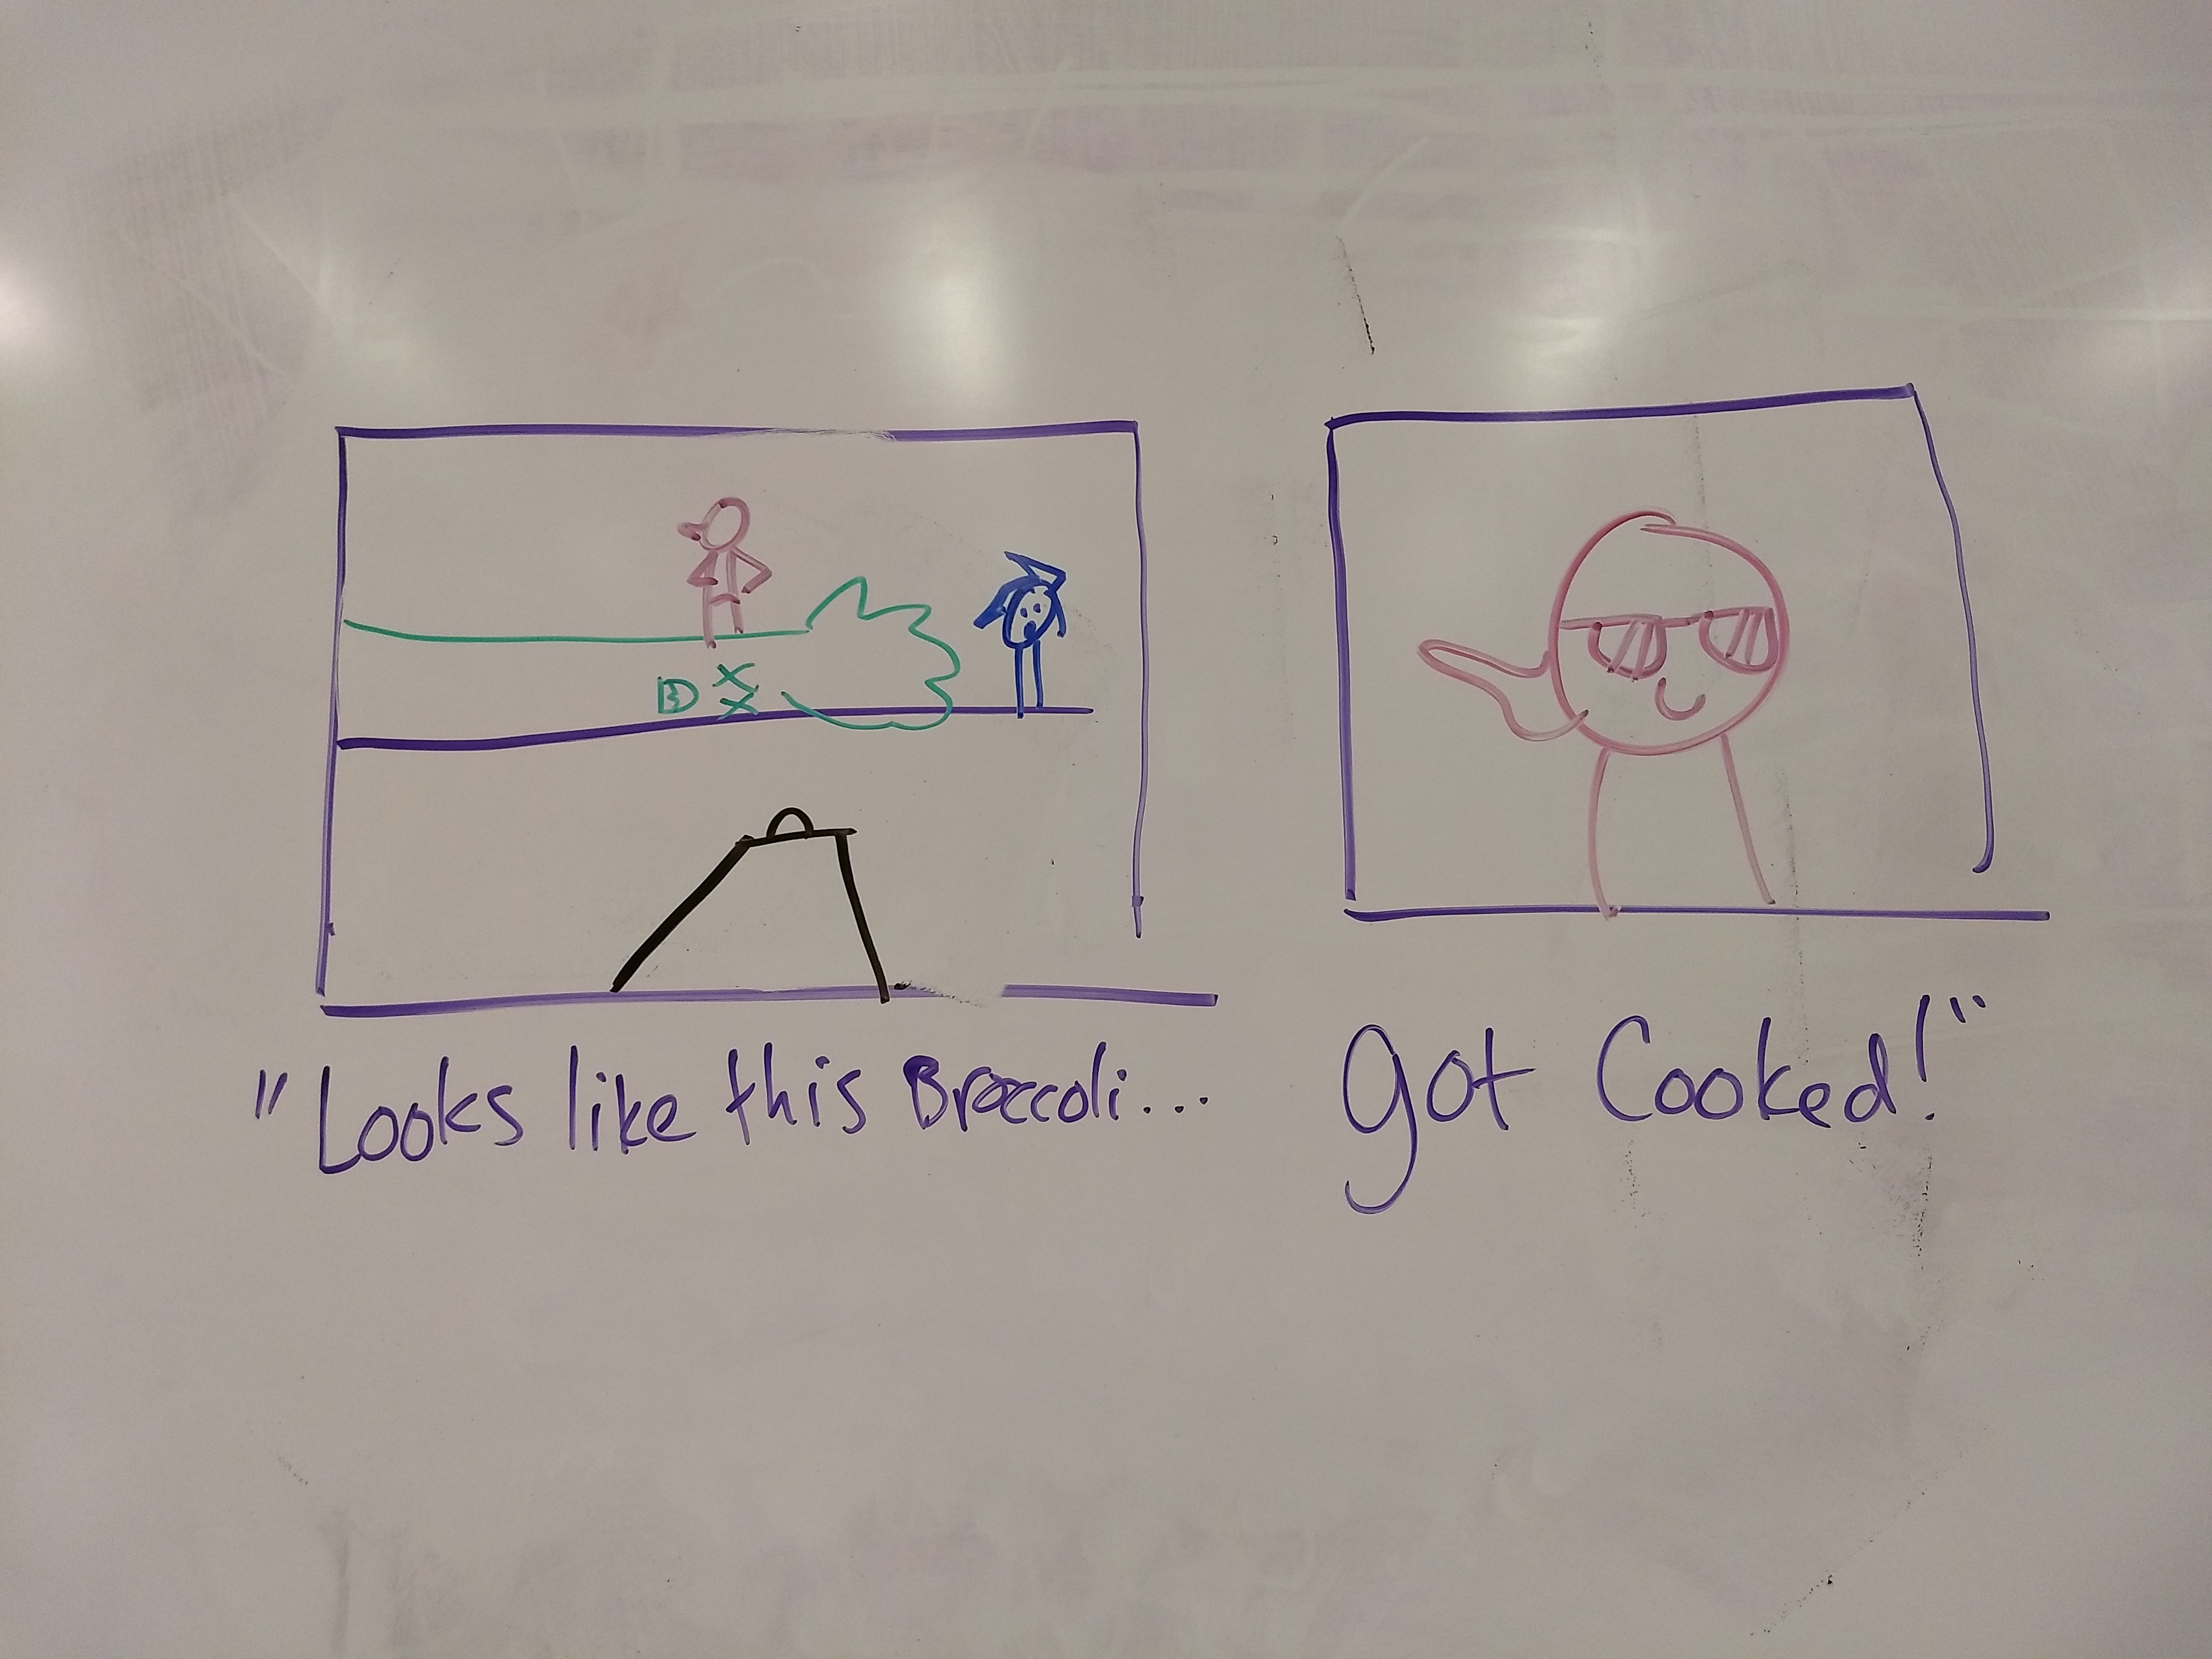 "Looks like this Broccoli...
got Cooked!"